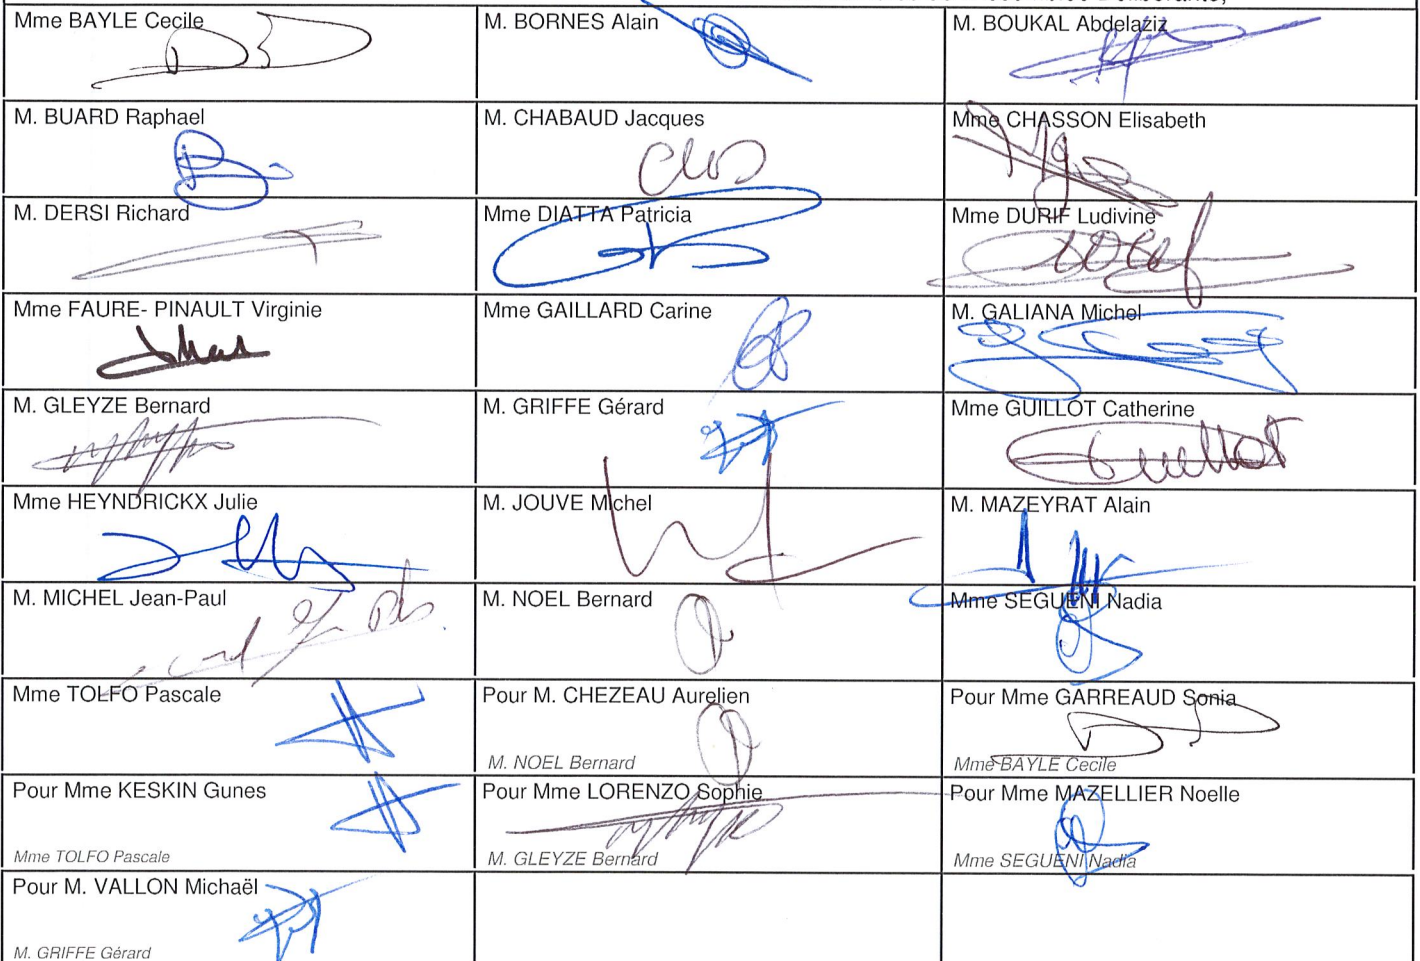 Mme BAYLE Cecile
M. BORNES Alain
M. BOUKAL Abdelaziz
M. BUARD Raphael
M. CHABAUD Jacques
Mme CHASSON Elisabeth
M. DERSI Richard
Mme DIATTA Patricia
Mme DURIF Ludivine
Mme FAURE- PINAULT Virginie
Mme GAILLARD Carine
M. GALIANA Michel
M. GLEYZE Bernard
M. GRIFFE Gérard
Mme GUILLOT Catherine
Guillot
Mme HEYNDRICKX Julie
M. JOUVE Michel
M. MAZEYRAT Alain
M. MICHEL Jean-Paul
M. NOEL Bernard
Mme SEGUENI Nadia
Mme TOLFO Pascale
Pour M. CHEZEAU Aurelien
M. NOEL Bernard
Pour Mme GARREAUD Sonia
Mme BAYLE Cecile
Pour Mme KESKIN Gunes
Mme TOLFO Pascale
Pour Mme LORENZO Sophie
M. GLEYZE Bernard
Pour Mme MAZELLIER Noelle
Mme SEGUENI Nadia
Pour M. VALLON Michaël
M. GRIFFE Gérard